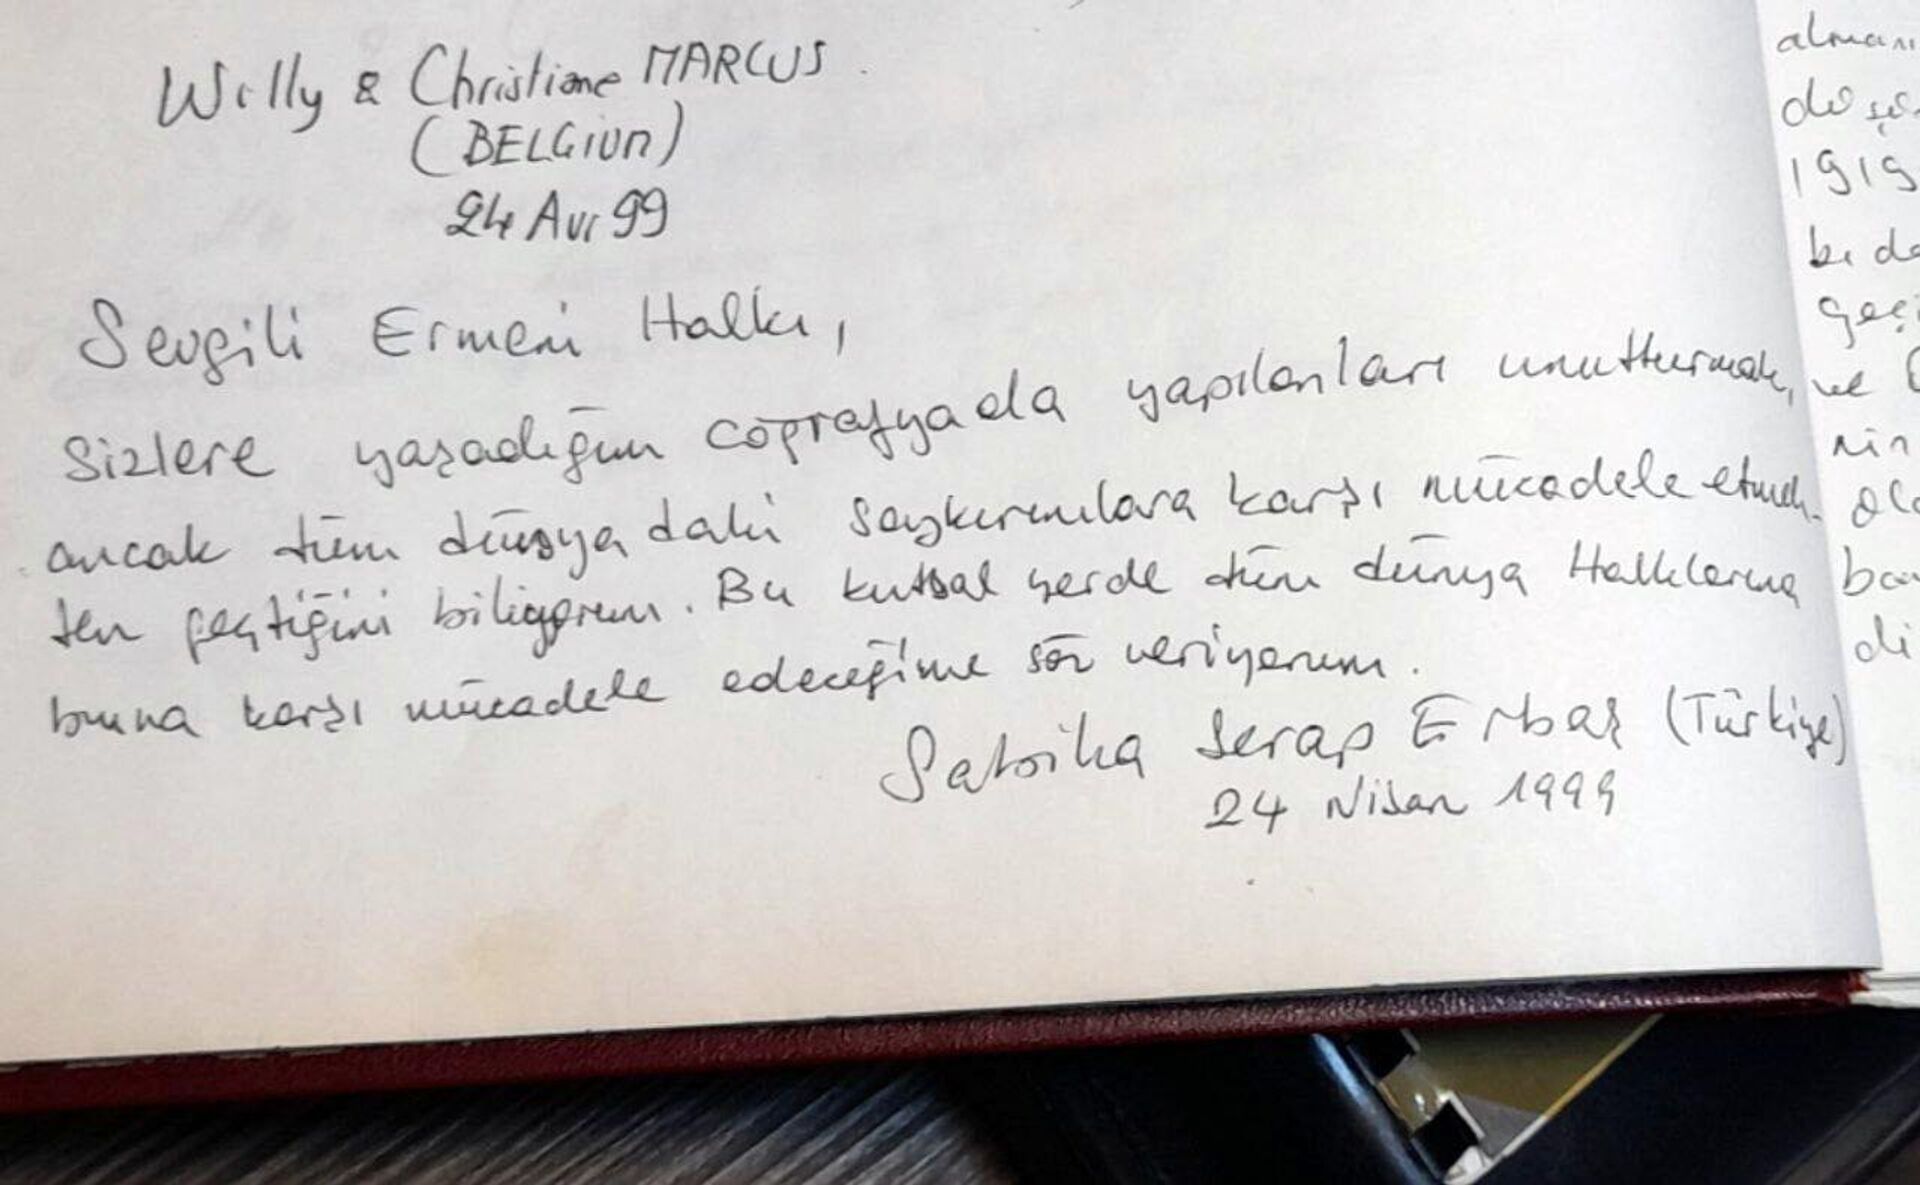 Willy & Christiane MARCUS.
(BELGiUM)
24 Avr 99
Sevgili Ermeni Halkı,
Sizlere yaşadığım coğrafyada yapılanları unutturmak,
ancak tüm dünyadaki soykırımlara karşı mücadele etmek-
ten geçtiğini biliyorum. Bu kutsal yerde tüm dünya Halklarına
buna karşı mücadele edeceğime söz veriyorum.
Serap Erbaş (Türkiye)
24 Nisan 1999
1919